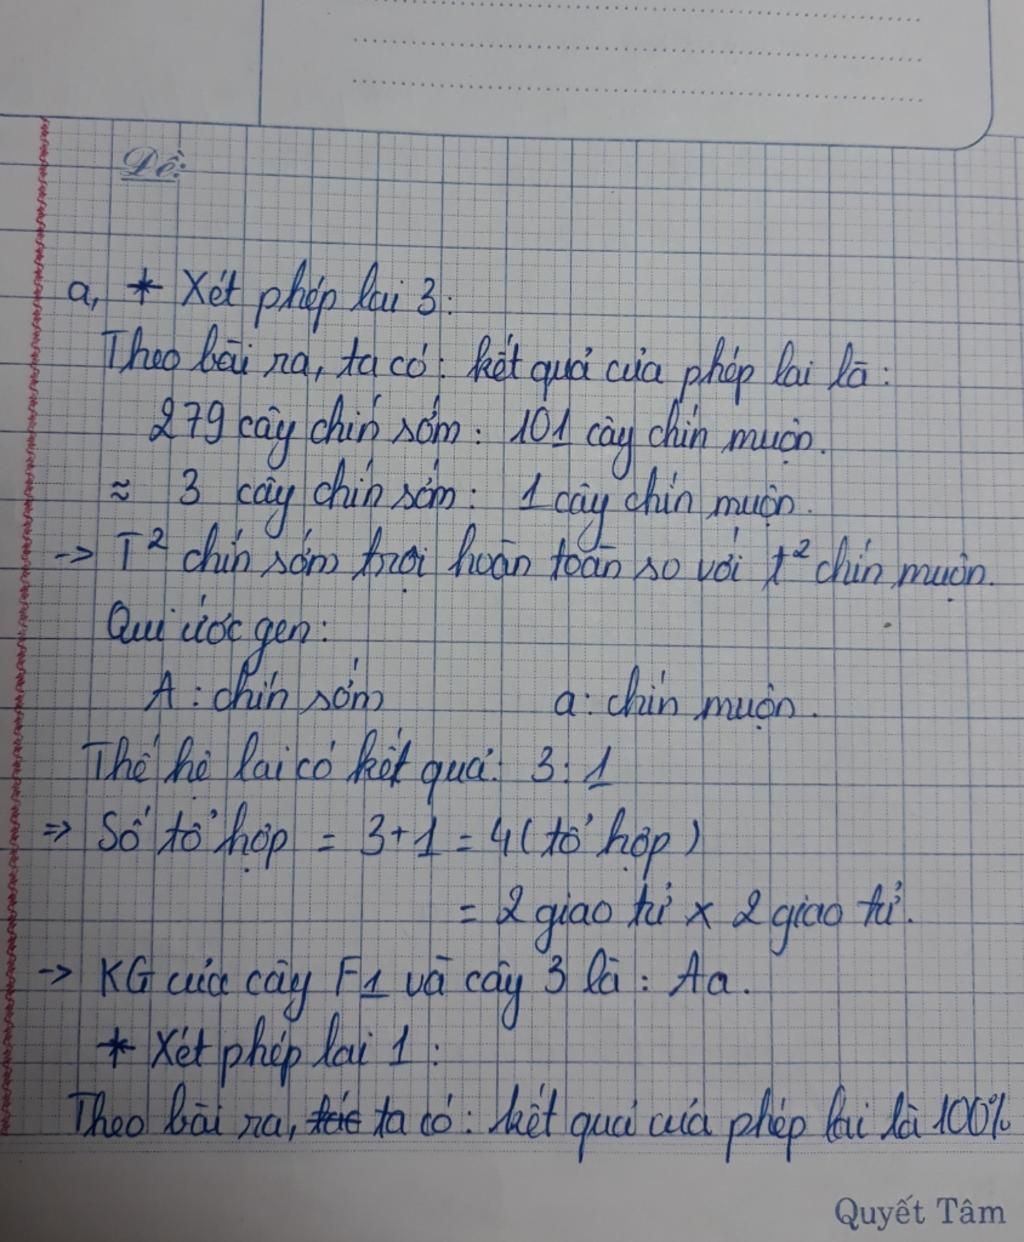 Đề:
a, * Xét phép lai 3:
Theo bài ra, ta có: kết quả của phép lai là:
279 cây chín sớm: 101 cây chín muộn.
≈ 3 cây chín sớm: 1 cây chín muộn.
-> T² chín sớm trội hoàn toàn so với t² chín muộn.
Qui ước gen:
A: chín sớm a: chín muộn.
Thế hệ lai có kết quả: 3:1
=> Số tổ hợp = 3+1 = 4 (tổ hợp)
= 2 giao tử x 2 giao tử.
-> KG của cây F1 và cây 3 là: Aa.
* Xét phép lai 1:
Theo bài ra, ta có: kết quả của phép lai là 100%
Quyết Tâm